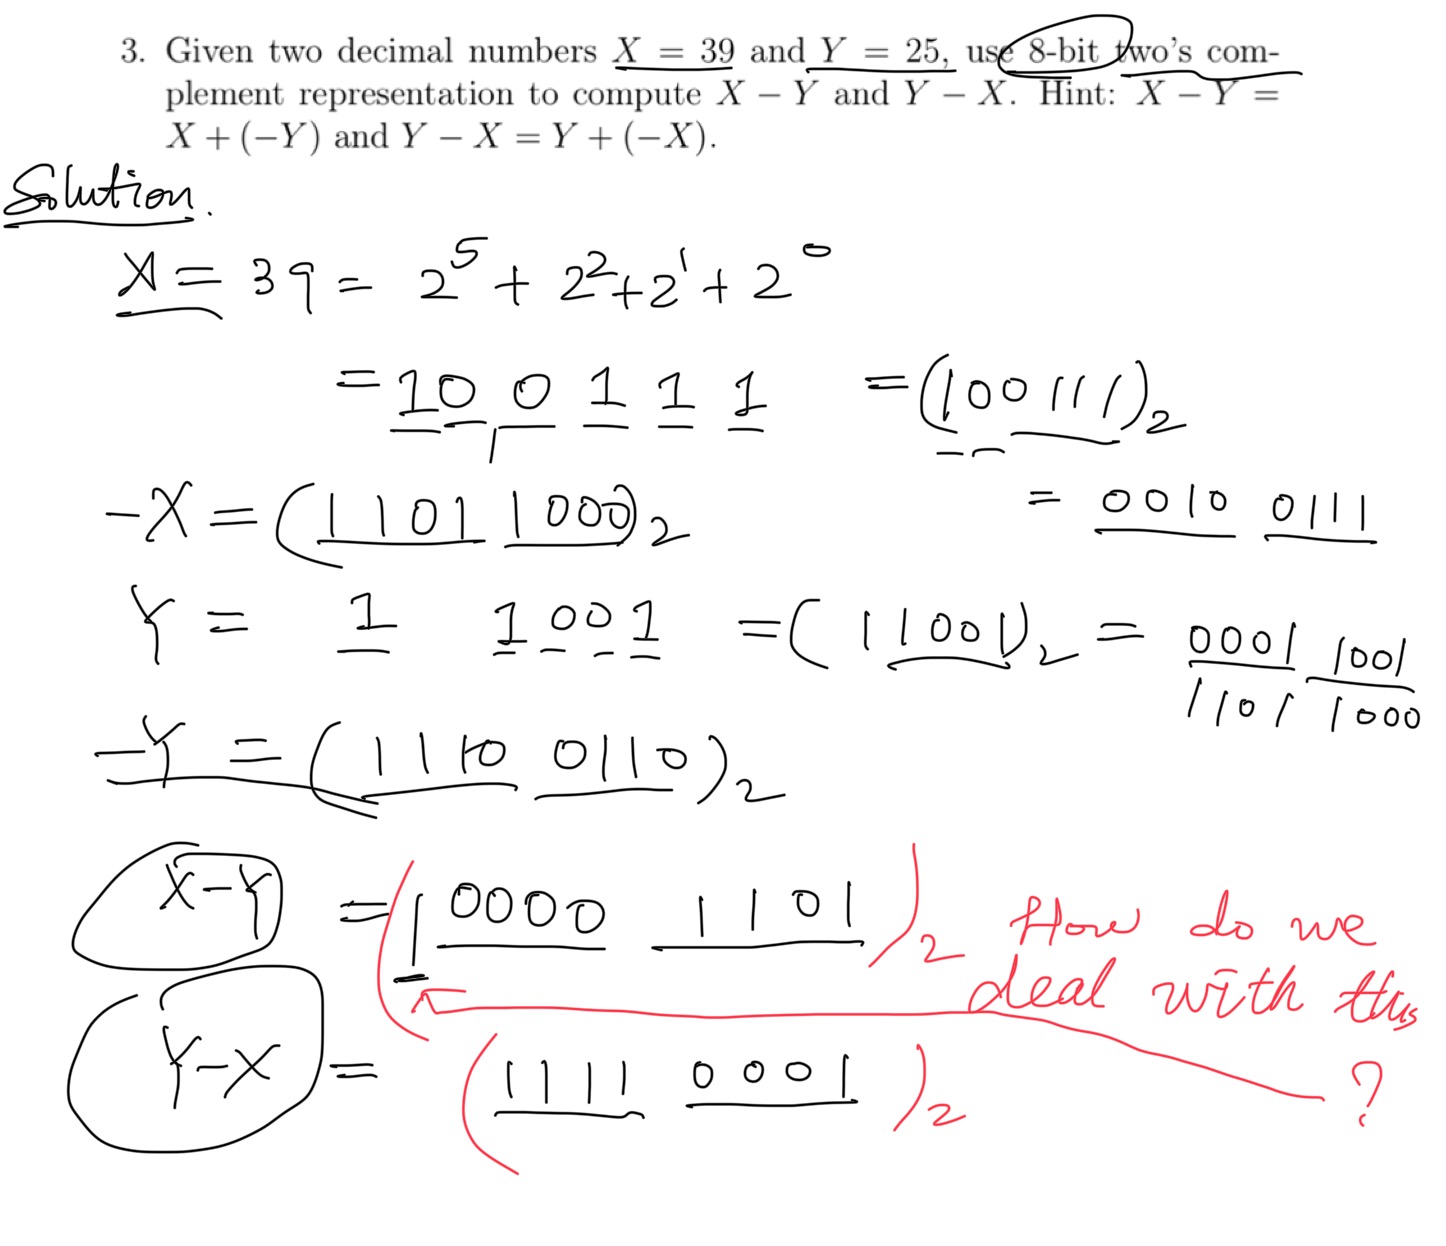 3. Given two decimal numbers X = 39 and Y = 25, use 8-bit two's com-
plement representation to compute X − Y and Y − X. Hint: X − Y =
X + (−Y) and Y − X = Y + (−X).
Solution.
X = 39 = 2^5 + 2^2 + 2^1 + 2^0
= 1 0 0 1 1 1 = (100111)_2
= 0010 0111
-X = (1101 1000)_2
Y = 1 1001 = (11001)_2 = 0001 1001
1101 1000
-Y = (1110 0110)_2
X-Y = (1 0000 1101)_2 How do we
deal with this
?
Y-X = (1111 0001)_2